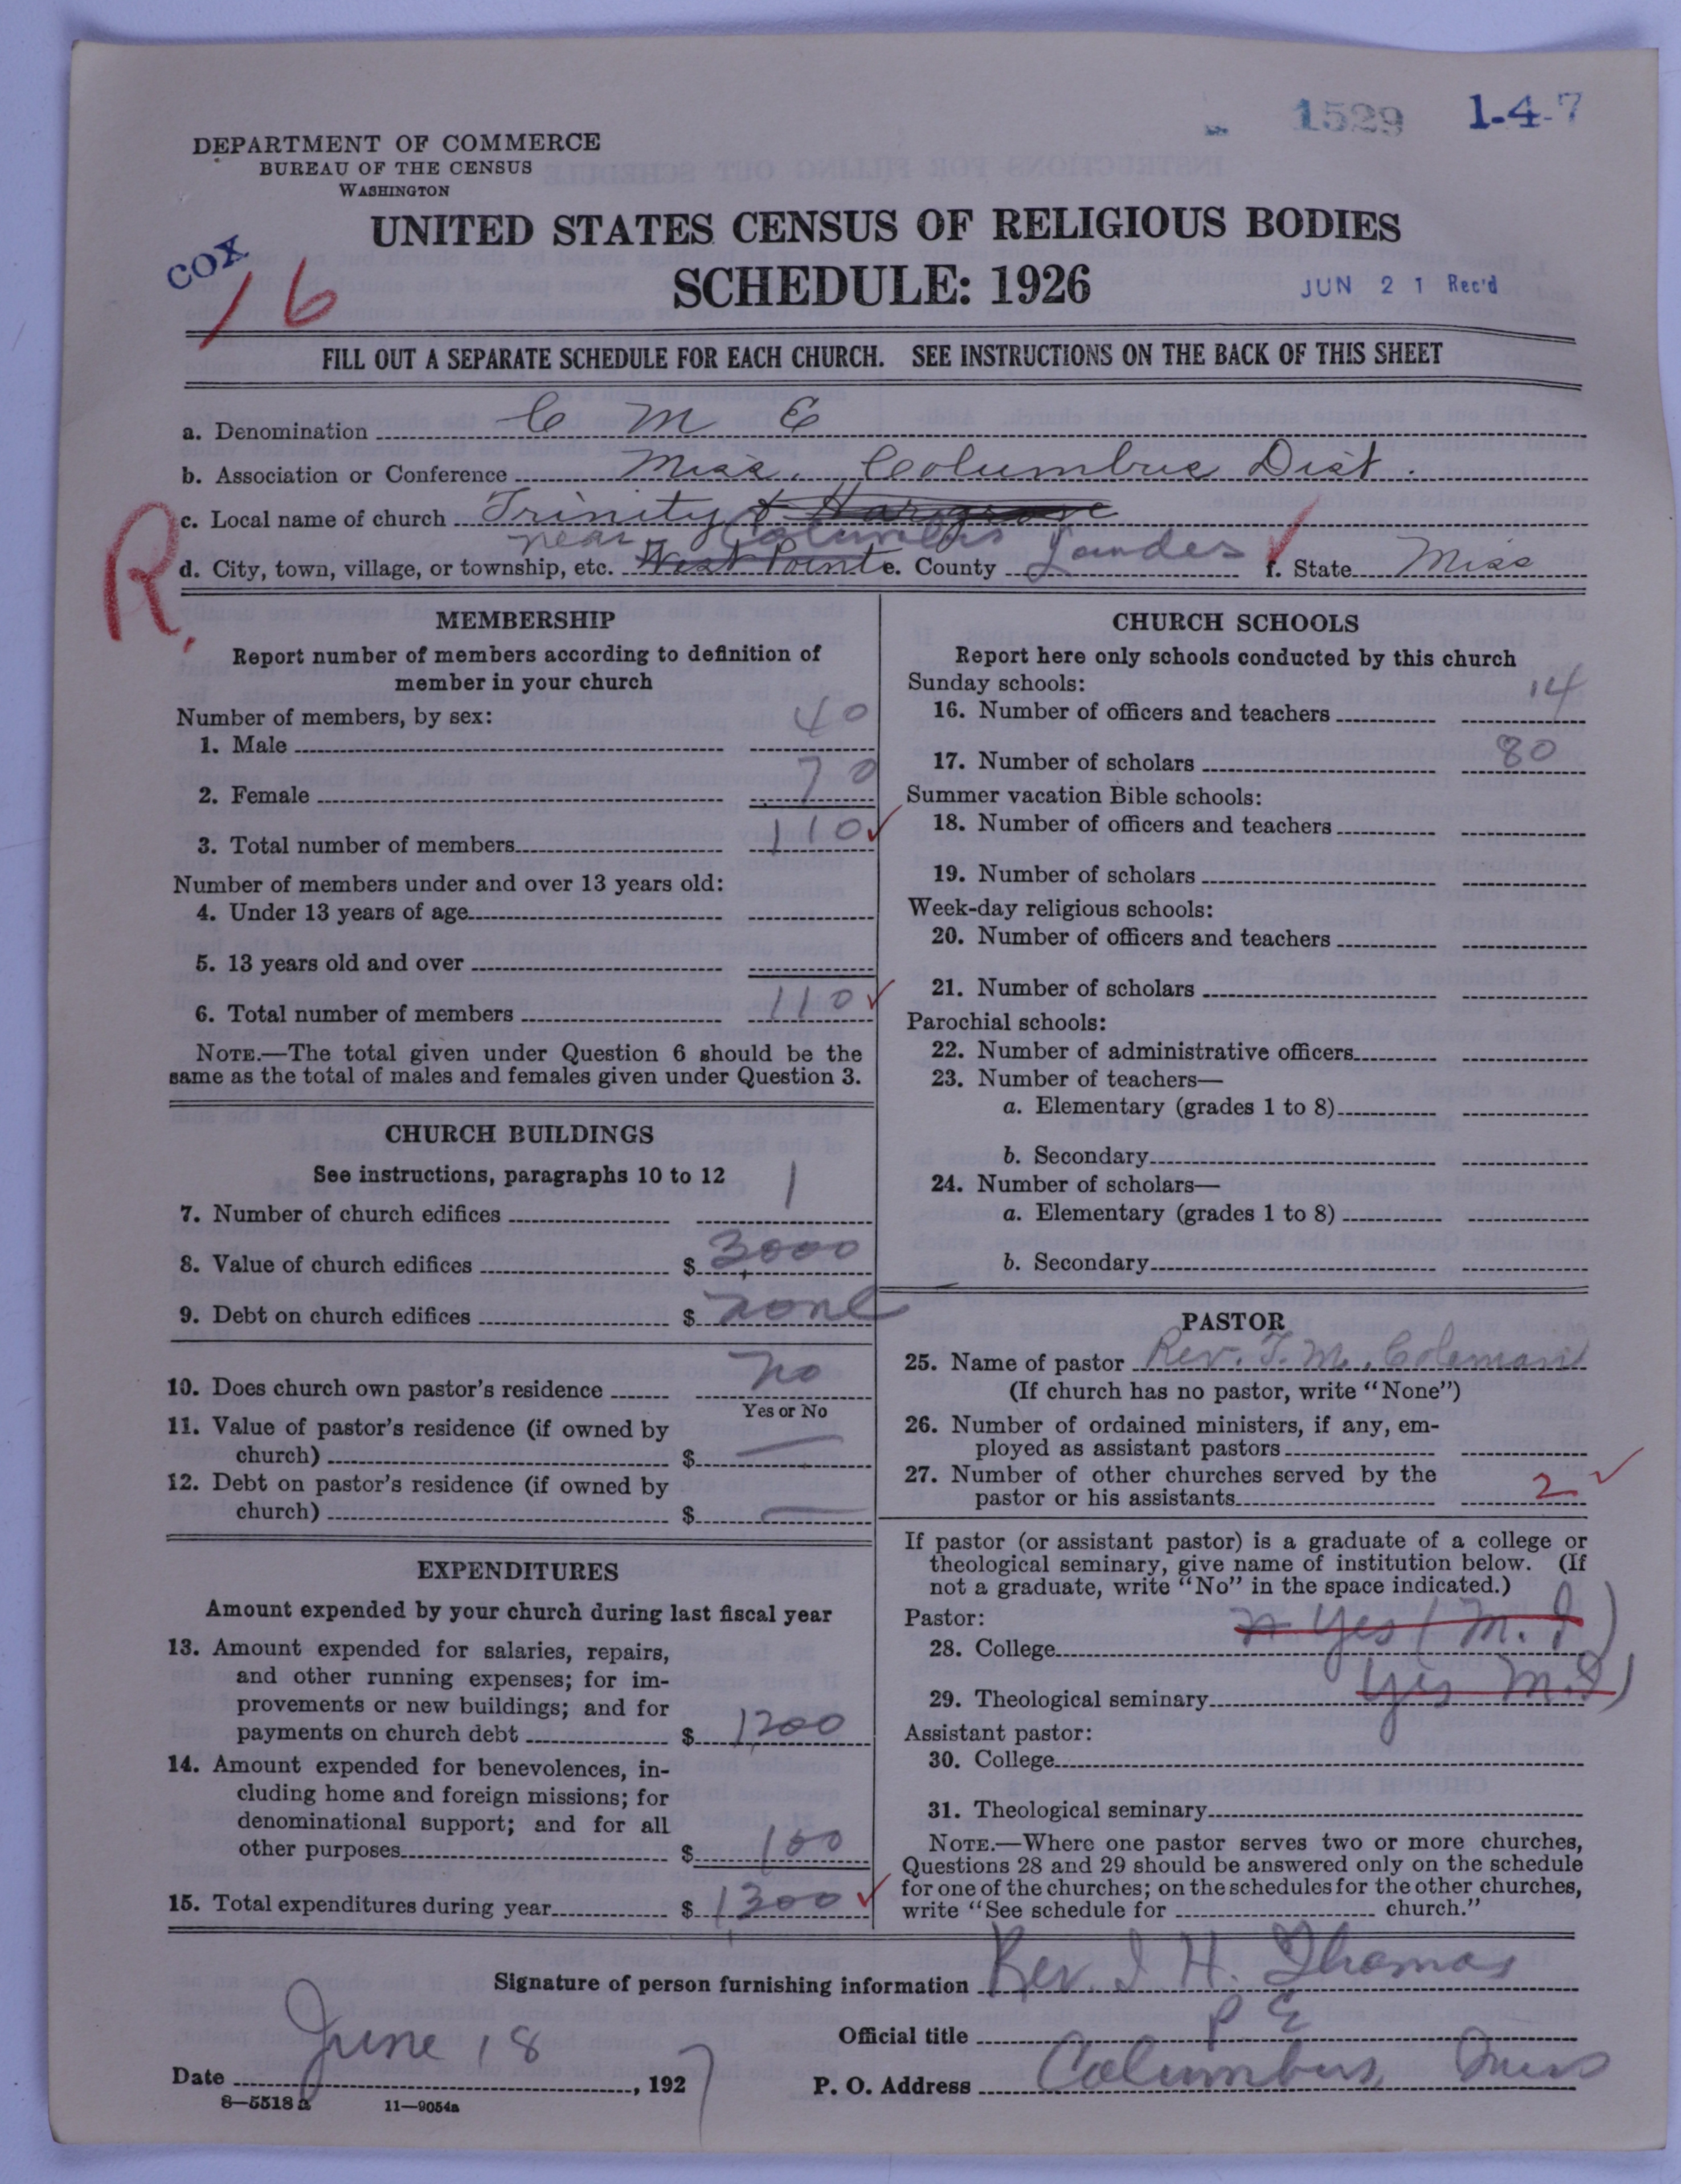 1529 1-4-7
DEPARTMENT OF COMMERCE
BUREAU OF THE CENSUS
WASHINGTON
UNITED STATES CENSUS OF RELIGIOUS BODIES
COX
16
SCHEDULE: 1926
JUN 21 Rec'd
FILL OUT A SEPARATE SCHEDULE FOR EACH CHURCH. SEE INSTRUCTIONS ON THE BACK OF THIS SHEET
a. Denomination C M E
b. Association or Conference Miss. Columbus Dist.
R.
c. Local name of church Trinity & Hargrove
near Columbus
d. City, town, village, or township, etc. West Point e. County Lowndes f. State Miss
MEMBERSHIP
Report number of members according to definition of
member in your church
Number of members, by sex:
1. Male 40
2. Female 70
3. Total number of members 110
Number of members under and over 13 years old:
4. Under 13 years of age
5. 13 years old and over
6. Total number of members 110
NOTE.—The total given under Question 6 should be the
same as the total of males and females given under Question 3.
CHURCH BUILDINGS
See instructions, paragraphs 10 to 12
7. Number of church edifices 1
8. Value of church edifices $ 3000
9. Debt on church edifices $ none
10. Does church own pastor's residence no
Yes or No
11. Value of pastor's residence (if owned by
church) $ —
12. Debt on pastor's residence (if owned by
church) $ —
EXPENDITURES
Amount expended by your church during last fiscal year
13. Amount expended for salaries, repairs,
and other running expenses; for im-
provements or new buildings; and for
payments on church debt $ 1200
14. Amount expended for benevolences, in-
cluding home and foreign missions; for
denominational support; and for all
other purposes $ 100
15. Total expenditures during year $ 1300
CHURCH SCHOOLS
Report here only schools conducted by this church
Sunday schools:
16. Number of officers and teachers 14
17. Number of scholars 80
Summer vacation Bible schools:
18. Number of officers and teachers
19. Number of scholars
Week-day religious schools:
20. Number of officers and teachers
21. Number of scholars
Parochial schools:
22. Number of administrative officers
23. Number of teachers—
a. Elementary (grades 1 to 8)
b. Secondary
24. Number of scholars—
a. Elementary (grades 1 to 8)
b. Secondary
PASTOR
25. Name of pastor Rev. T. M. Coleman
(If church has no pastor, write "None")
26. Number of ordained ministers, if any, em-
ployed as assistant pastors
27. Number of other churches served by the
pastor or his assistants 2
If pastor (or assistant pastor) is a graduate of a college or
theological seminary, give name of institution below. (If
not a graduate, write "No" in the space indicated.)
Pastor:
28. College Yes (M. I)
29. Theological seminary Yes M. I)
Assistant pastor:
30. College
31. Theological seminary
NOTE.—Where one pastor serves two or more churches,
Questions 28 and 29 should be answered only on the schedule
for one of the churches; on the schedules for the other churches,
write "See schedule for church."
Signature of person furnishing information Rev. I H. Thomas
Official title P E
Date June 18, 1927
P. O. Address Columbus, Miss
8—5518 a 11—9054a